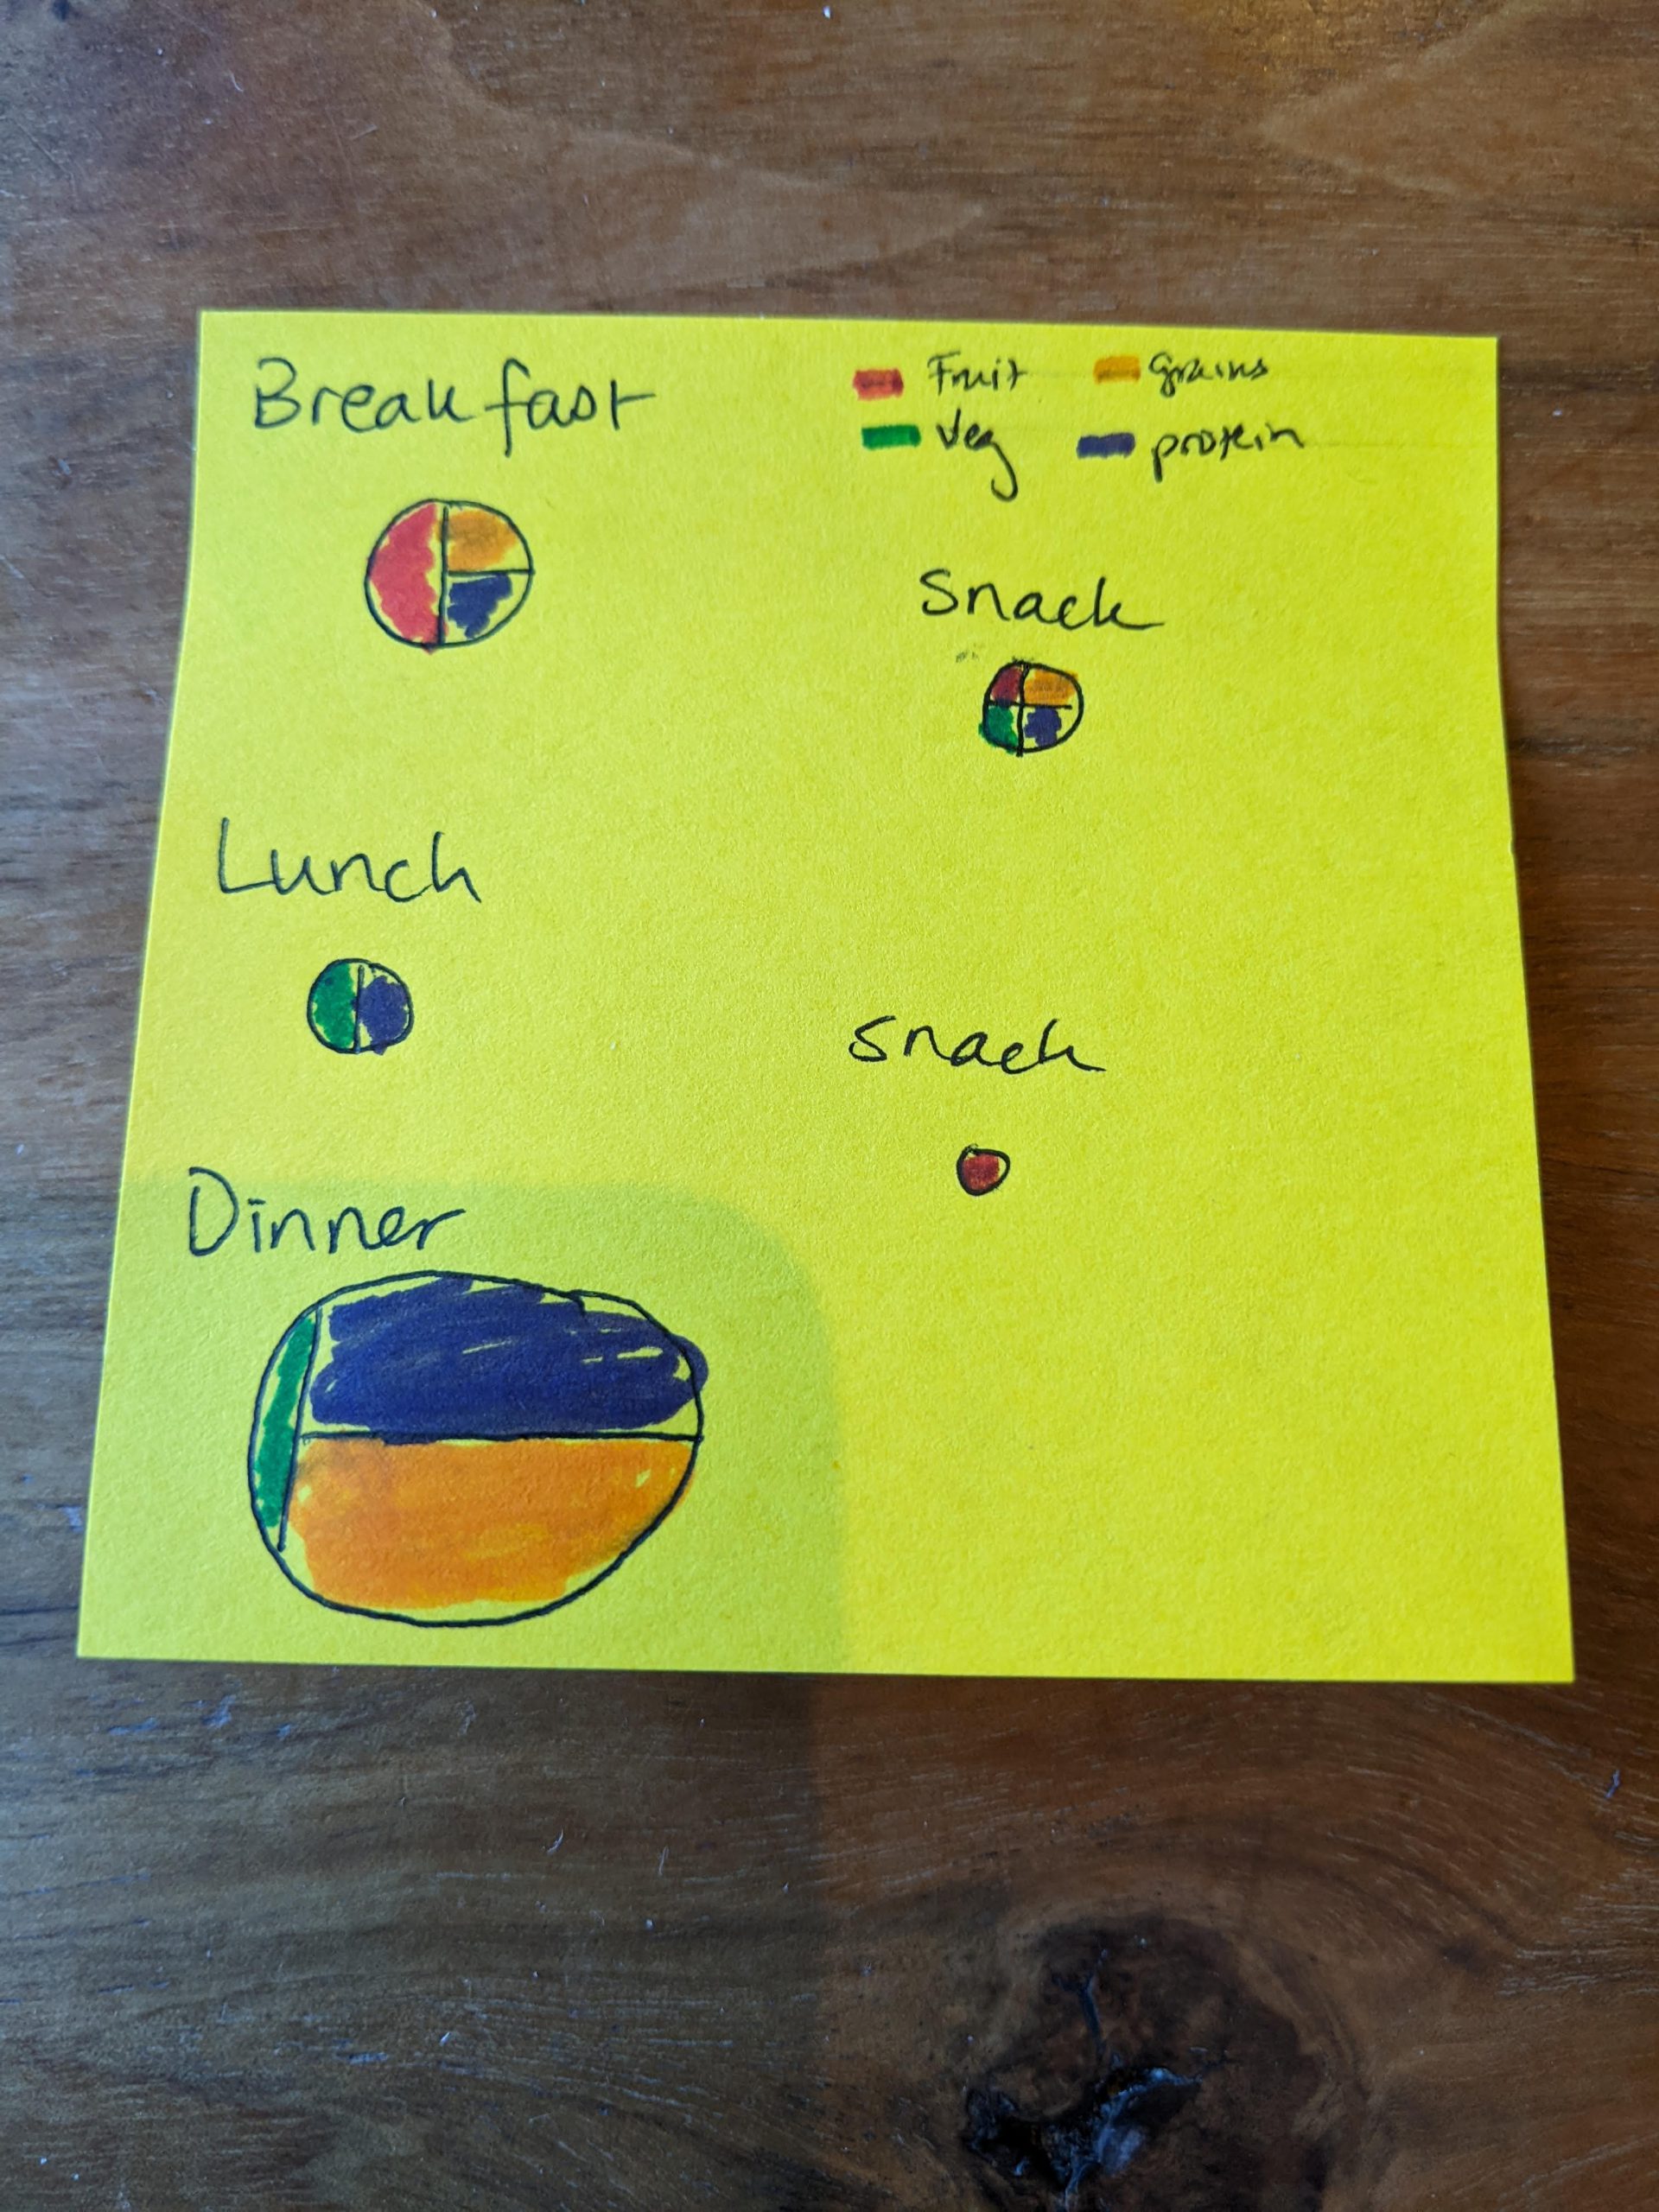 Breakfast
Fruit Grains
Veg protein
Snack
Lunch
Snack
Dinner